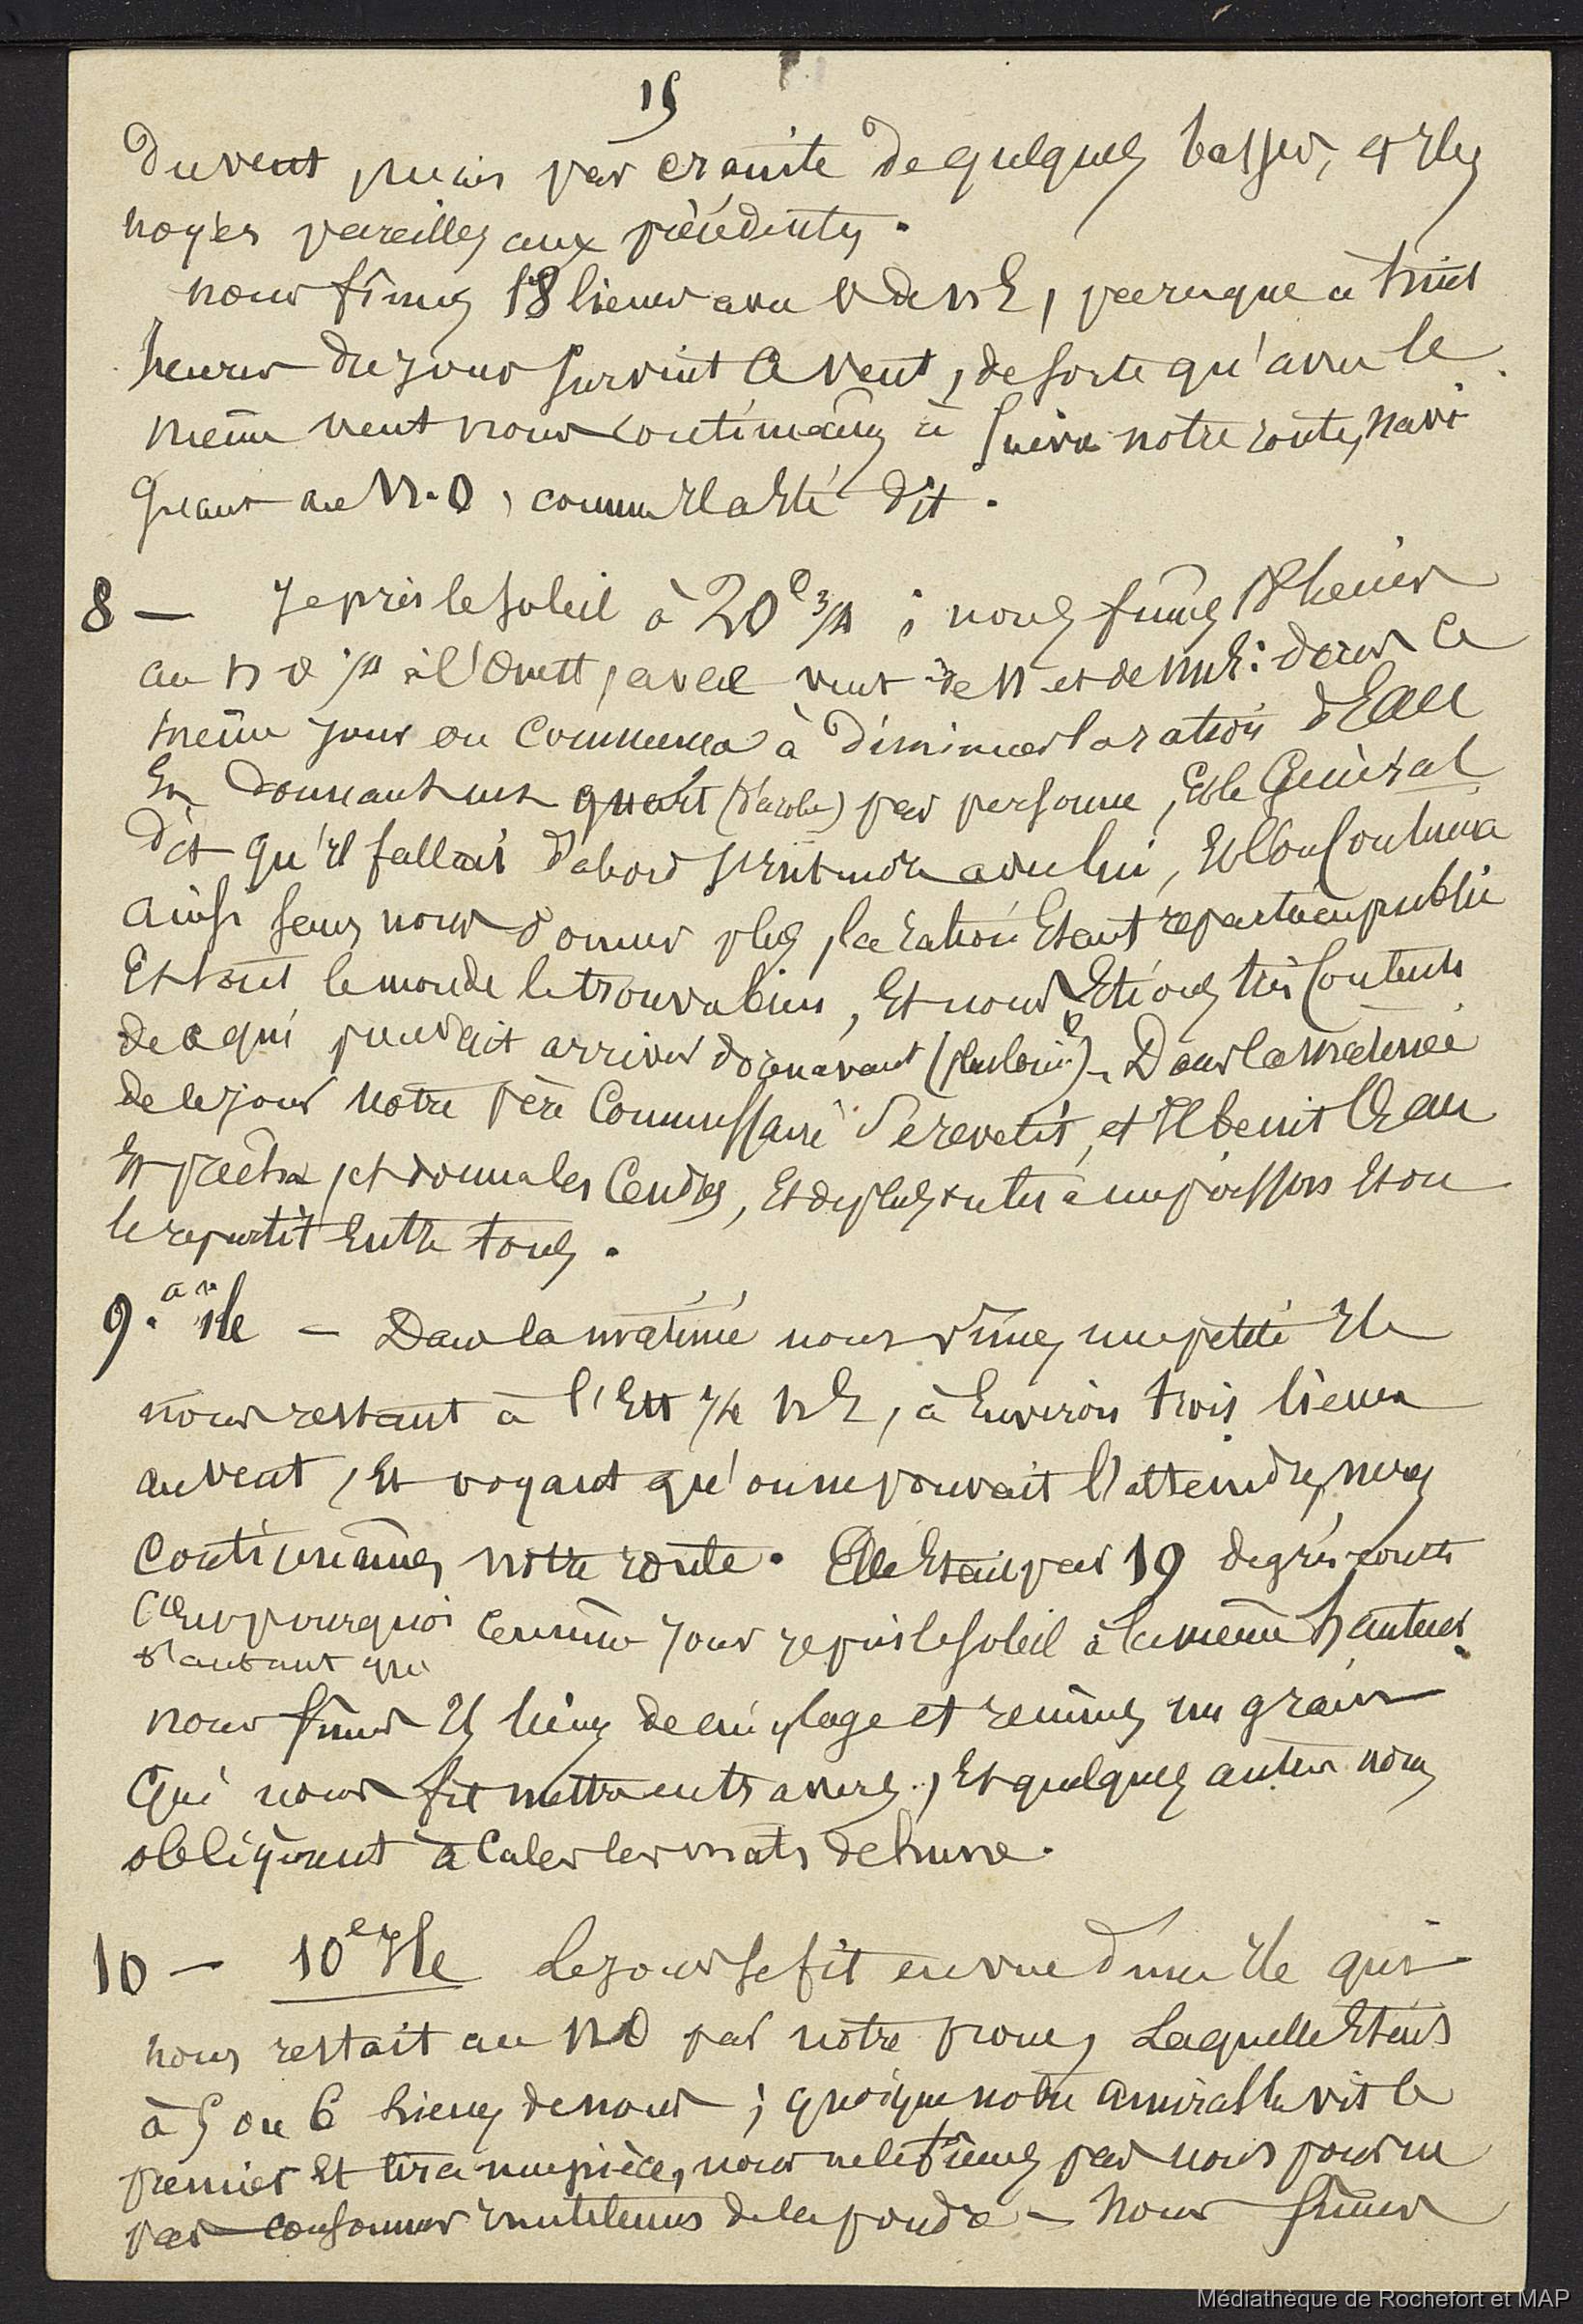 15
Du vent, mais par crainte de quelques basses, et Iles
noyées pareilles aux précédentes.
nous fîmes 18 lieues avec V de NE, parceque à huit
heures du jour survint ce vent, de sorte qu'avec le
même vent nous continuâmes à suivre notre route, navi
guant au N.O, comme il a été dit.
8 — Je pris le soleil à 20e 3/4 ; nous fîmes 18 lieues
au NO 1/4 à l'Ouest, avec vent de N et de NNE: dans ce
même jour on commença à diminuer la ration d'Eau
En donnant un quart (d'açole) par personne, Et le Général
dit qu'il fallait d'abord avec lui, Et l'on continua
ainsi sans nous donner plus, la ration Etant repartie en public
Et tout le monde le trouva bien, Et nous Etions très contents
de ce qui pouvait arriver dorenavant (plus loin) – Dans la matinée
de ce jour notre Père Commissaire se revetit, et Il benit l'Eau
Et prêcha, et donna les Cendres, Et de plus on tua un poisson Et on
le repartit Entre tous.
9. 9e île — Dans la matinée nous vîmes une petite Ile
nous restant à l'Est 1/4 NE, à Environ trois lieues
au vent, Et voyant qu'on ne pouvait l'atteindre, nous
continuâmes notre route. Elle Etait par 19 degrés courts
C'est pourquoi ce même jour je pris le soleil à la même hauteur.
d'autant que
nous fîmes 25 lieues de et reçûmes un grain
Qui nous fit mettre en travers, Et quelques autres nous
obligèrent à Caler les mats de hune.
10 — 10e Ile Le jour se fit en vue d'une Ile qui
nous restait au NO par notre proue, Laquelle Etait
à 5 ou 6 Lieues de nous ; quoique notre amiral la vit le
premier Et tira une pièce, nous ne le fîmes pas nous pour ne
pas consommer inutilement de la poudre – Nous fîmes
Médiathèque de Rochefort et MAP